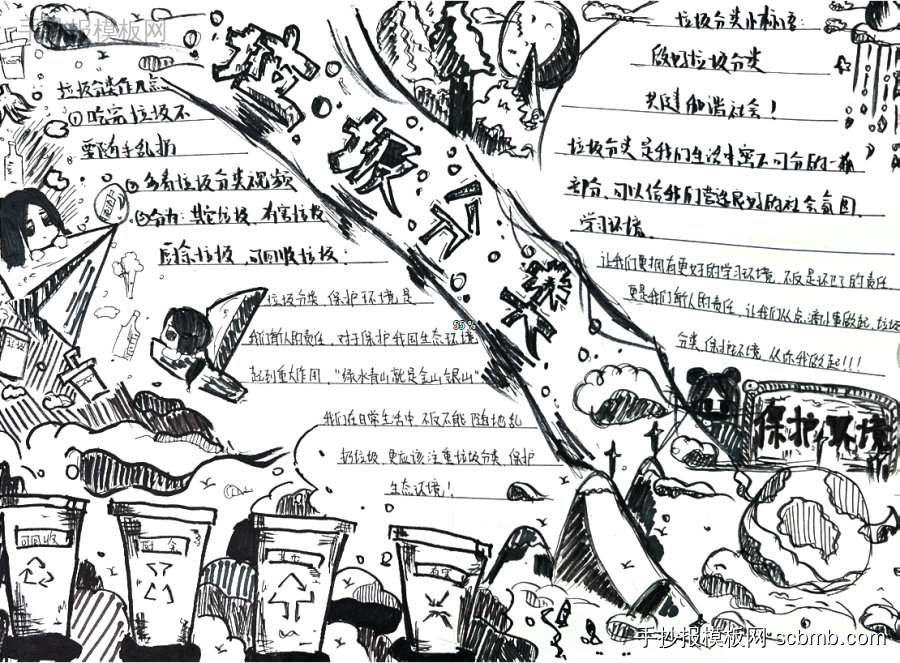 手抄报模板网
垃圾分类
垃圾分类作用
①吃完垃圾不
要随手乱扔
②多看垃圾分类视频
③分为:其它垃圾、有害垃圾
厨余垃圾,可回收垃圾.
垃圾分类 保护环境是
我们每个人的责任,对于保护我国生态环境
起到重大作用,"绿水青山就是金山银山"
我们在日常生活中 不仅不能随地乱
扔垃圾,更应该注重垃圾分类,保护
生态环境!
垃圾分类小标语:
做好垃圾分类
共建和谐社会!
垃圾分类是我们生活中密不可分的一
部分,可以给我们营造良好的社会氛围,
学习环境.
让我们要拥有更好的学习环境,不仅是环卫工的责任
更是我们每个人的责任,让我们从点滴小事做起,垃圾
分类,保护环境,从你我做起!!!
保护环境
95%
可回收
厨余
其它
有害
手抄报模板网-scbmb.com